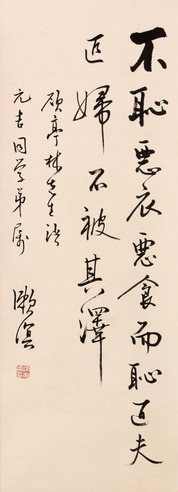 不恥惡衣惡食而恥匹夫
匹婦不被其澤
顾亭林先生语
元吉同学弟属
漱溟